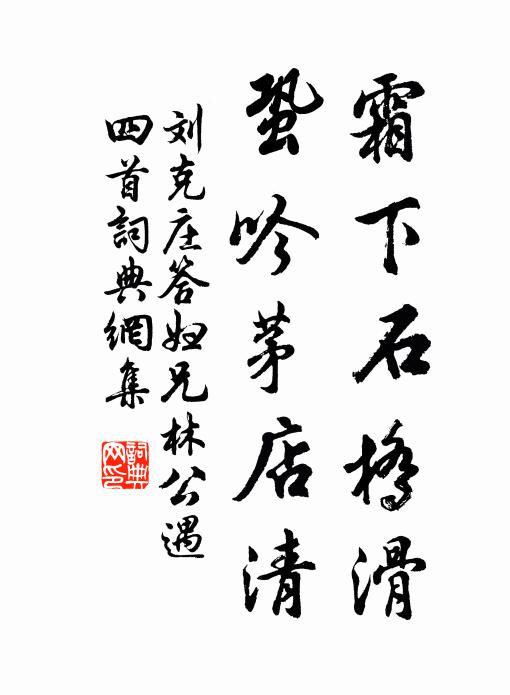 霜下石橋滑
蛩吟茅店清
刘克庄答妇兄林公遇
四首詞典網集
詞典
网印